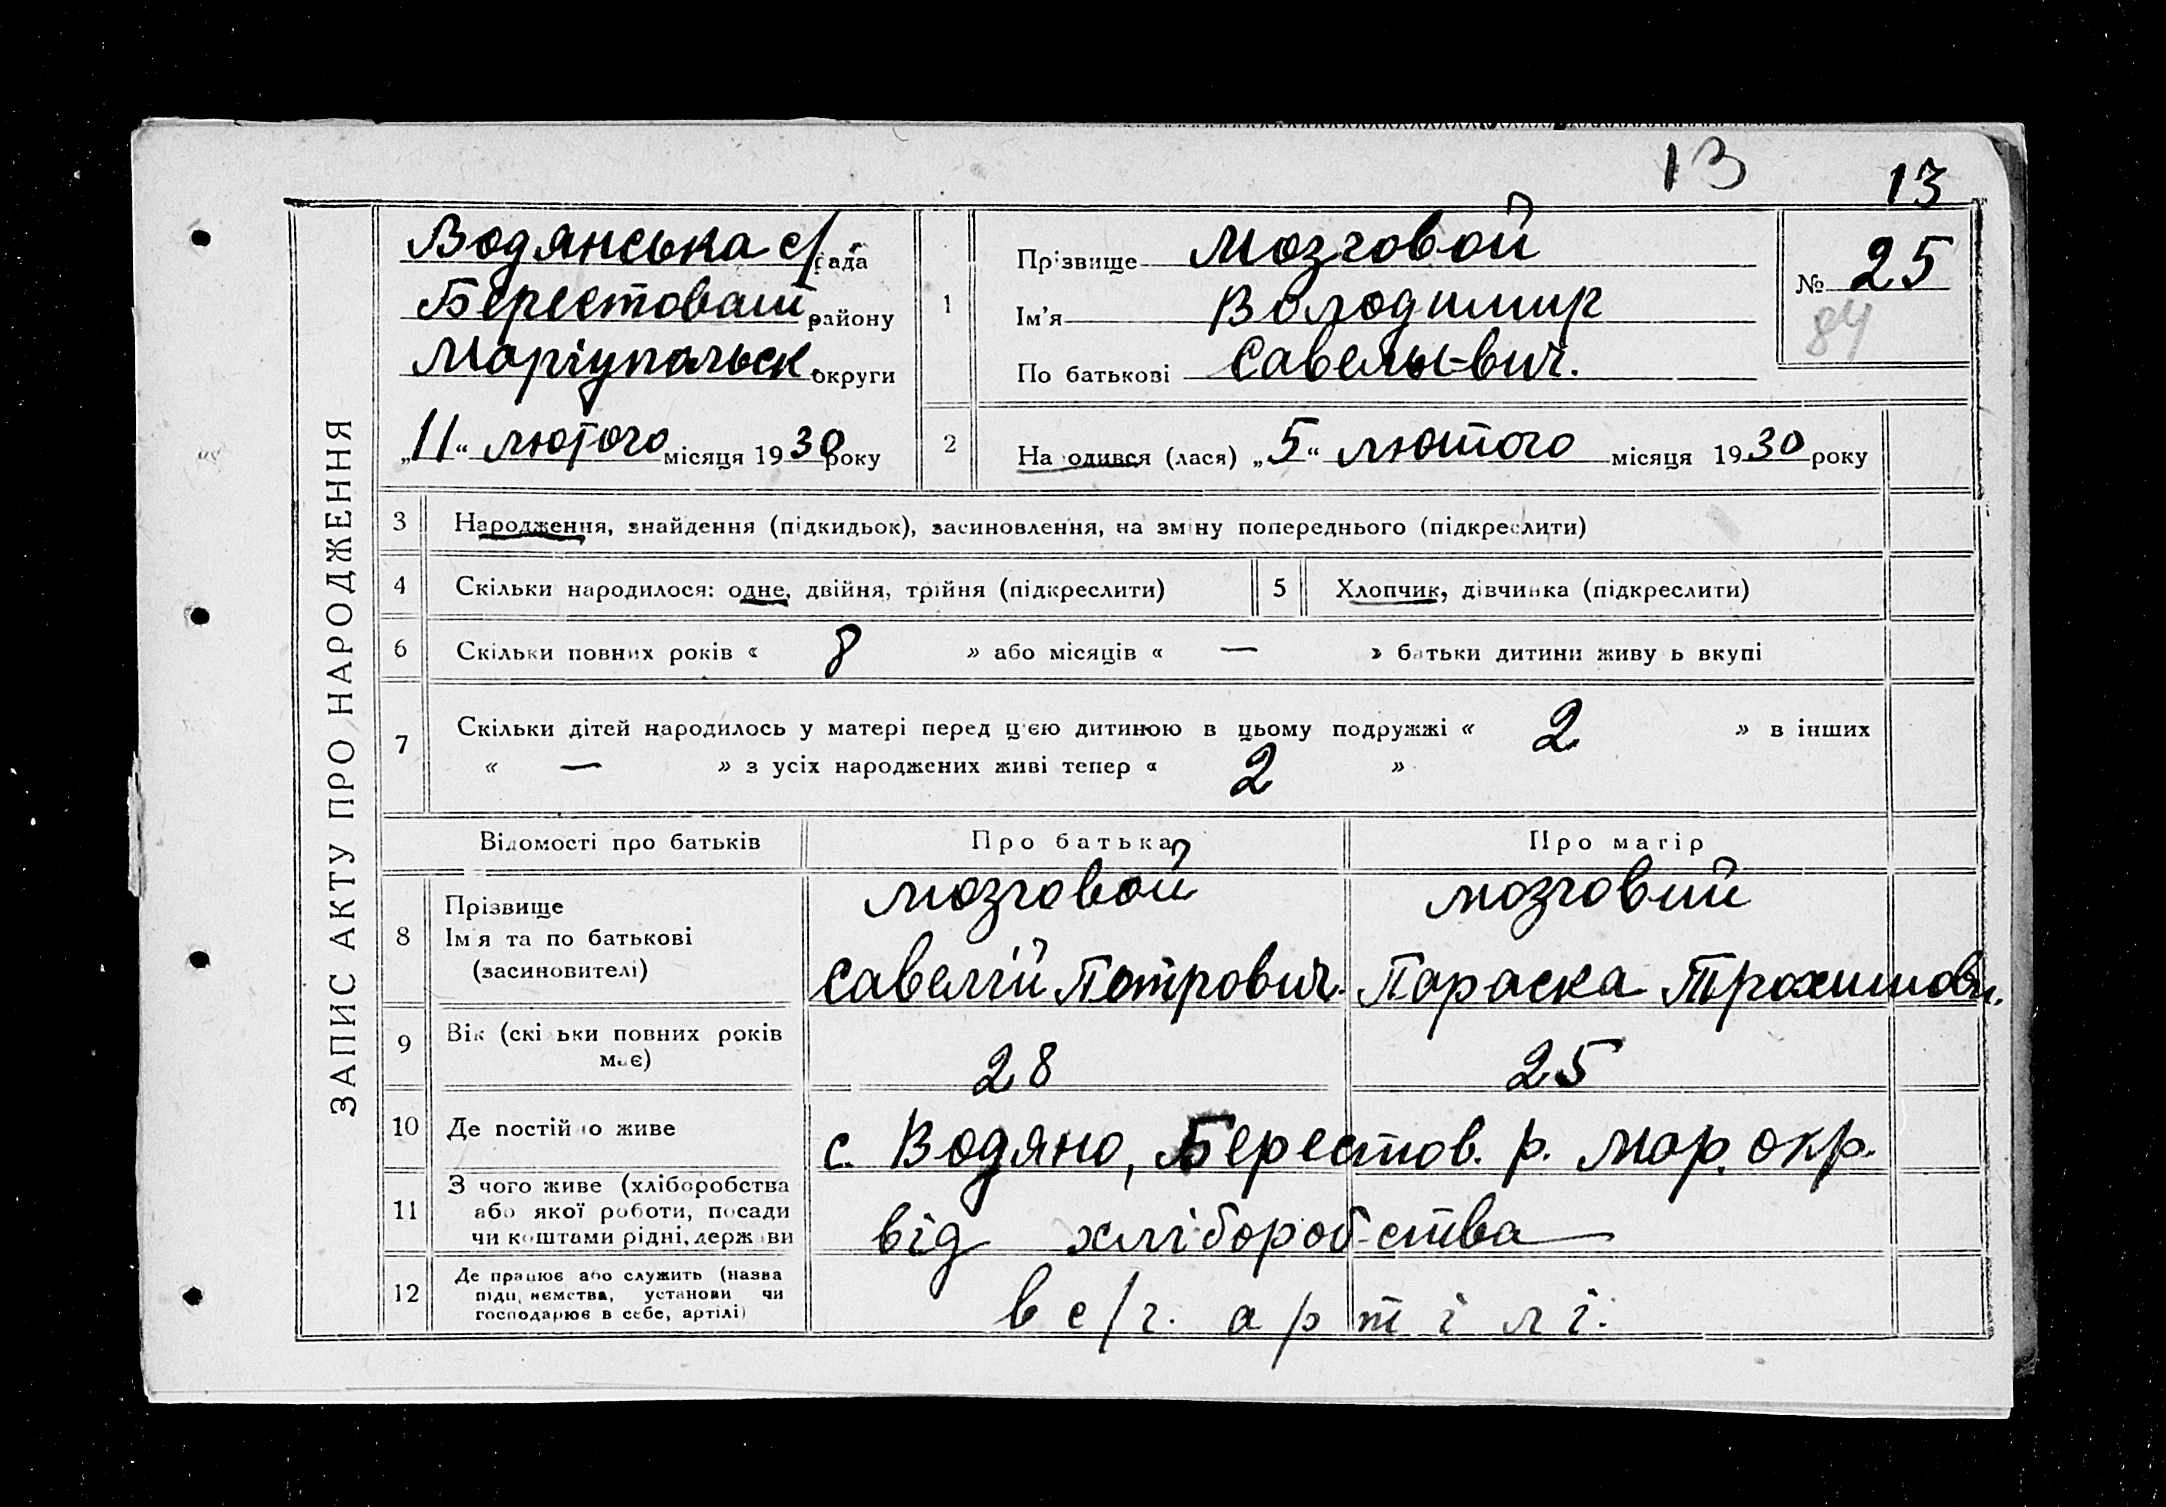 13
13
ЗАПИС АКТУ ПРО НАРОДЖЕННЯ
Водянська с/рада
Берестоваш району
Маріупальськ. округи
„11“ лютого місяця 1930 року
1
Прізвище Мозговой
Ім'я Володимир
По батькові Савельевич.
№ 25
84
2
Народився (лася) „5“ лютого місяця 1930 року
3 Народження, знайдення (підкидьок), засиновлення, на зміну попереднього (підкреслити)
4 Скільки народилося: одне, двійня, трійня (підкреслити)
5 Хлопчик, дівчинка (підкреслити)
6 Скільки повних років « 8 » або місяців « — » батьки дитини живуть вкупі
7 Скільки дітей народилось у матері перед цією дитиною в цьому подружжі « 2 » в інших
« — » з усіх народжених живі тепер « 2 »
Відомості про батьків Про батька Про матір
8 Прізвище Мозговой Мозговий
Ім'я та по батькові
(засиновителі) Савелій Петрович. Параска Трохимовн.
9 Вік (скільки повних років
має) 28 25
10 Де постійно живе с. Водяно, Берестов. р. Мар. окр.
11 З чого живе (хліборобства
або якої роботи, посади
чи коштами рідні, держави від хліборобства
12 Де працює або служить (назва
підприємства, установи чи
господарює в себе, артілі) в с/г. артілі.